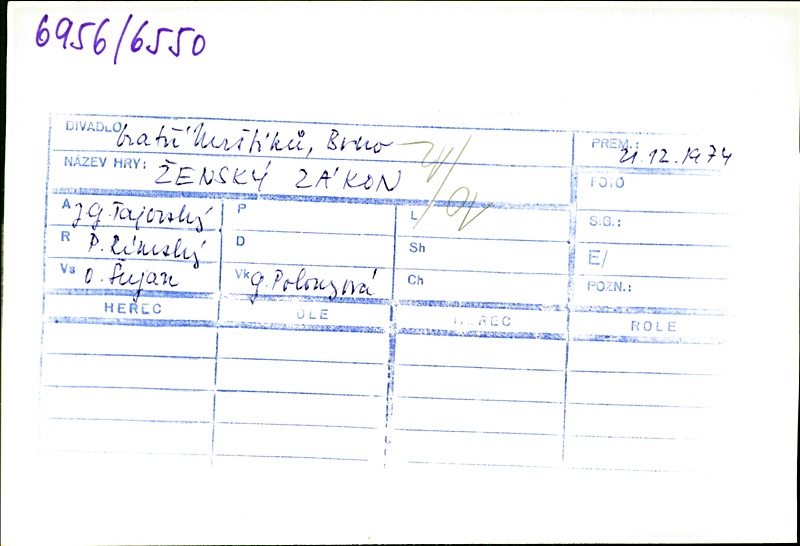 6956/6550
DIVADLO bratří Mrštíků, Brno
PREM.: 21.12.1974
NÁZEV HRY: ŽENSKÝ ZÁKON
FOTO
A J.G. Tajovský P L S.G.:
R P. Rímský D Sh E/
Vs O. Šujan Vk G. Polonyová Ch POZN.:
HEREC ROLE HEREC ROLE